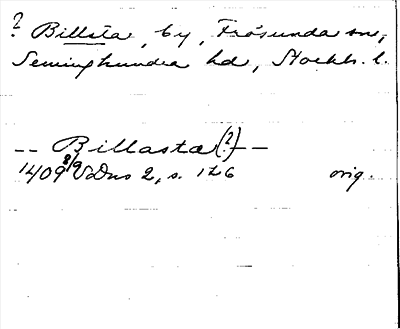 ? Billsta, by, Frösunda sn,
Seminghundra hd, Stockh. l.
-- Billasta (?) --
1409 8/9 SvDns 2, s. 126 orig.